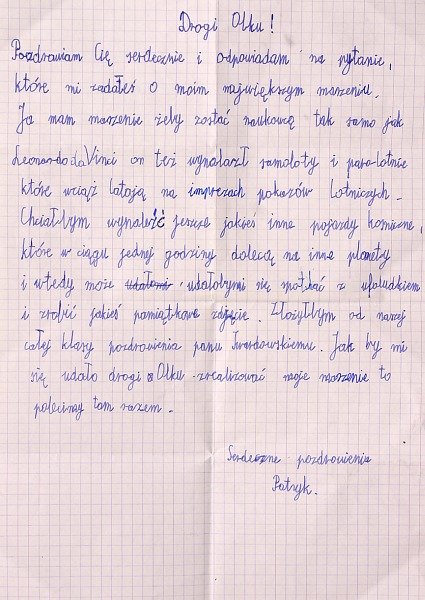 Drogi Olku!
Pozdrawiam Cię serdecznie i odpowiadam na pytanie,
które mi zadałeś o moim największym marzeniu.
Ja mam marzenie żeby zostać naukowcą tak samo jak
Leonardo da Vinci on też wynalazł samoloty i paralotnie
które wciąż latają na imprezach pokazów lotniczych.
Chciałbym wynaleźć jeszcze jakieś inne pojazdy kosmiczne,
które w ciągu jednej godziny dolecą na inne planety
i wtedy może udałobymi się spotkać z ufoludkiem
i zrobić jakieś pamiątkowe zdjęcie. Złożyłbym od naszej
całej klasy pozdrowienia panu Twardowskiemu. Jak by mi
się udało drogi Olku zrealizować moje marzenie to
polecimy tam razem.
Serdeczne pozdrowienia
Patryk.